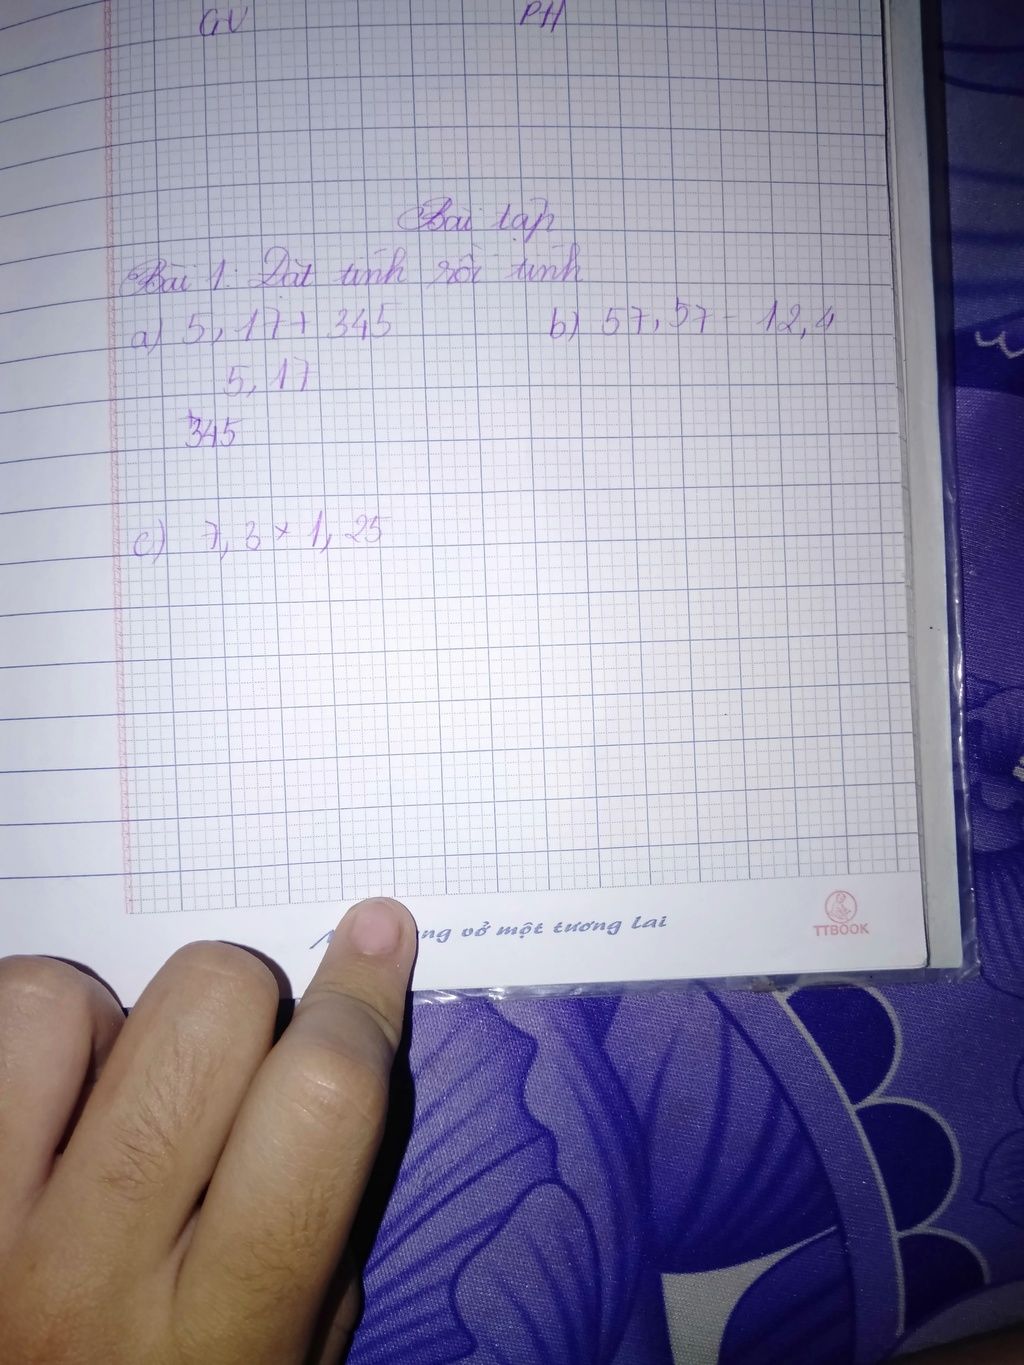 GV PH
Bài tập
Bài 1: Đặt tính rồi tính
a) 5,17 + 345 b) 57,57 - 12,4
5,17
+
345
c) 7,3 × 1,25
ng vở một tương lai
TTBOOK